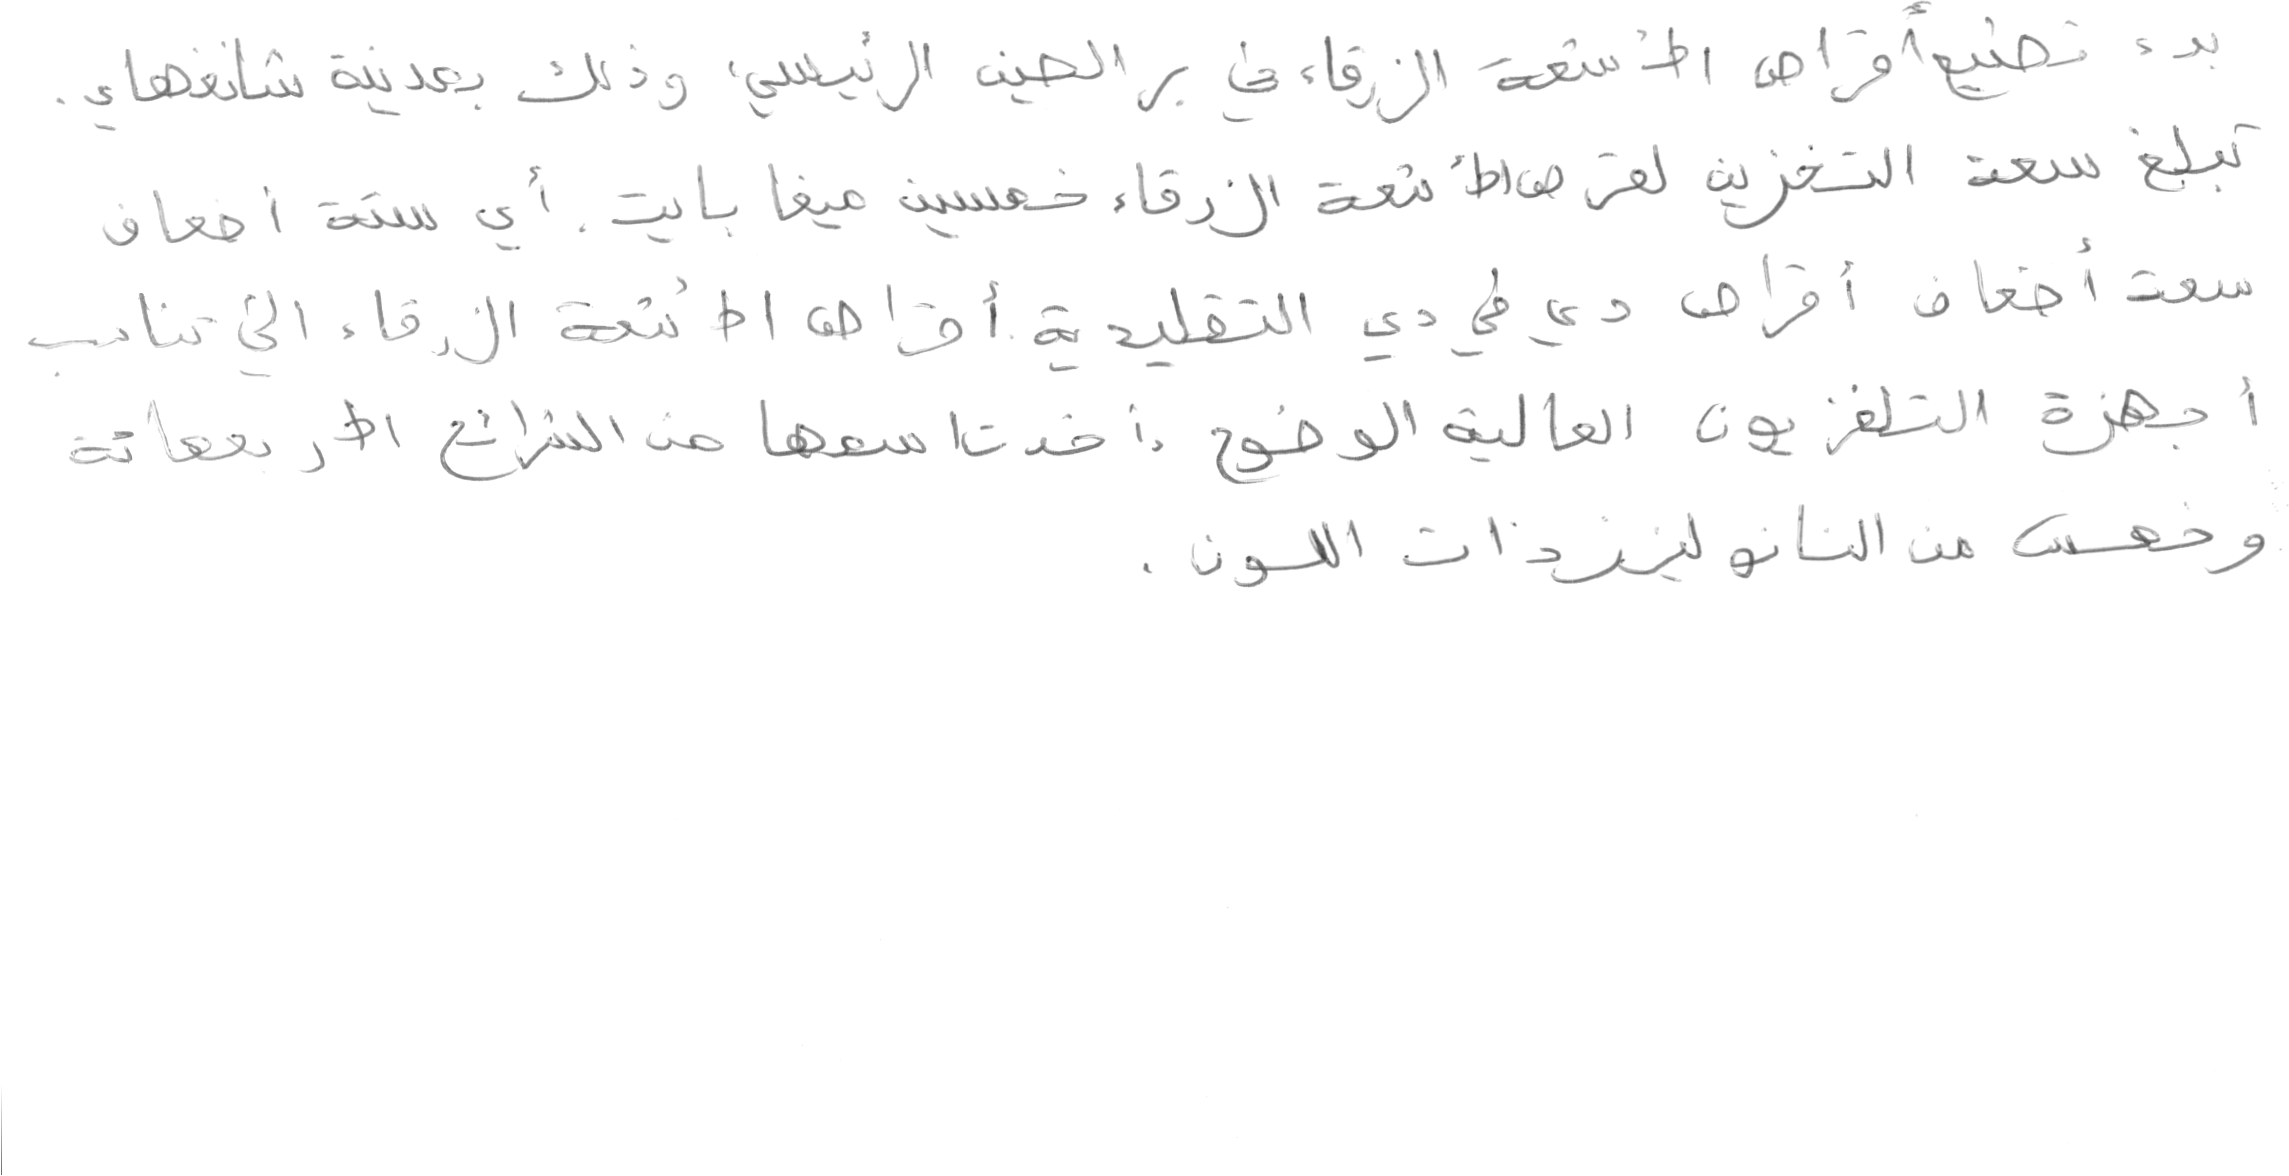 بدء تصنيع أقراص الأشعة الزرقاء في بر الصين الرئيسي، وذلك بمدينة شانغهاي.
تبلغ سعة التخزين لقرص الأشعة الزرقاء خمسين ميغا بايت. أي ستة اضعاف
سعة أضعاف أقراص دي في دي التقليدية. أقراص الأشعة الزرقاء التي تناسب
أجهزة التلفزيون العالية الوضوح، أخذت اسمها من الشرائح الأربعمائة
وخمس من النانو ليزر ذات اللون.